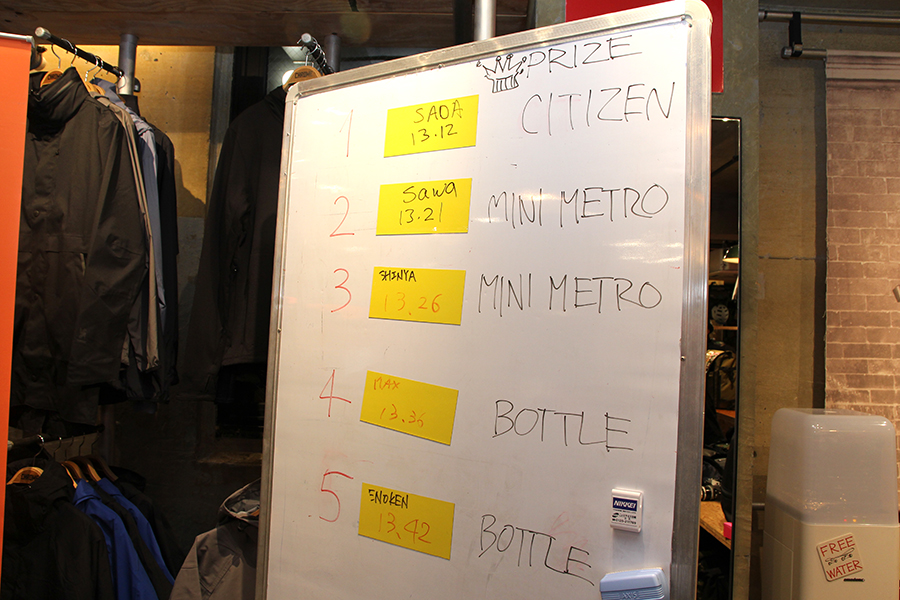 PRIZE
1 SADA 13.12 CITIZEN
2 Sawa 13.21 MINI METRO
3 SHINYA 13.26 MINI METRO
4 MAX 13.36 BOTTLE
5 ENOKEN 13.42 BOTTLE
NIKKEI
FREE
WATER